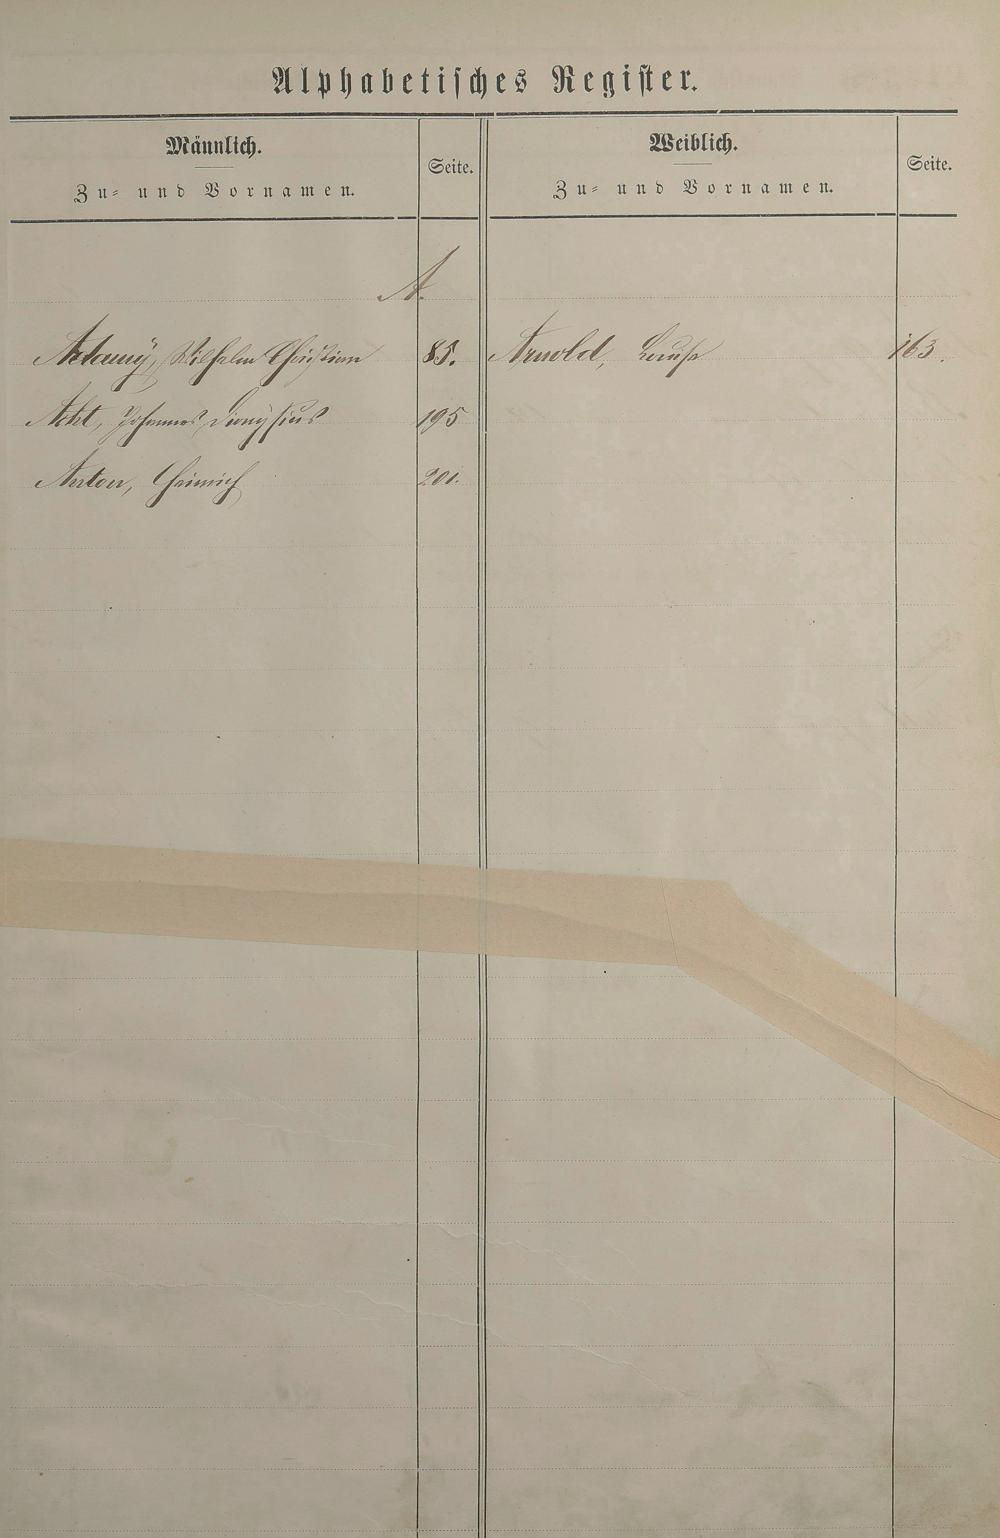 Alphabetisches Register.
Männlich.
Zu- und Vornamen.
Seite.
Weiblich.
Zu- und Vornamen.
Seite.
A.
Adamÿ, Wilhelm Christian 85. Arnold, Louise 163.
Acht, Johannes Dionysius 195
Anton, Heinrich 201.